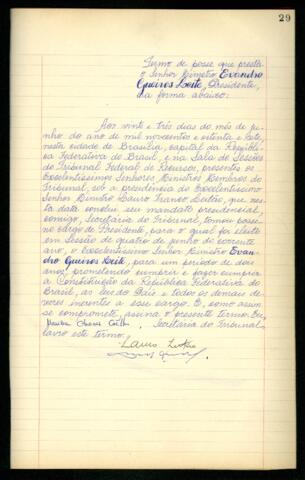 29
Termo de posse que presta
o Senhor Ministro Evandro
Gueiros Leite, Presidente,
na forma abaixo:
Aos vinte e três dias do mês de ju-
nho do ano de mil novecentos e oitenta e sete,
nesta cidade de Brasília, capital da Repúbli-
ca Federativa do Brasil, e na Sala de Sessões
do Tribunal Federal de Recursos, presentes os
Excelentíssimos Senhores Ministros Membros do
Tribunal, sob a presidência do Excelentíssimo
Senhor Ministro Lauro Franco Leitão, que nes-
ta data conclui seu mandato presidencial,
comigo, Secretária do Tribunal, tomou posse
no cargo de Presidente, para o qual foi eleito
em Sessão de quatro de junho do corrente
ano, o Excelentíssimo Senhor Ministro Evan-
dro Gueiros Leite, para um período de dois
anos, prometendo cumprir e fazer cumprir
a Constituição da República Federativa do
Brasil, as leis do País e todos os demais de-
veres inerentes a esse cargo. E, como assim
se comprometeu, assina o presente termo. Eu,
Secretária do Tribunal,
lavro este termo.
Lauro Leitão